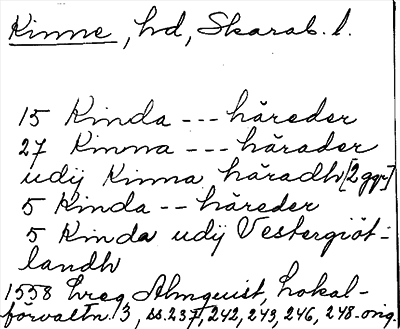 Kinne, hd, Skarab. l.
15 Kinda --- häreder
27 Kinna --- härader
udij Kinna häradh [2 ggr]
5 Kinda -- häreder
5 Kinda udij Vestergiöt-
landh
1558 Lreg Almquist, Lokal-
förvaltn. 3, ss. 237, 242, 243, 246, 248. orig.